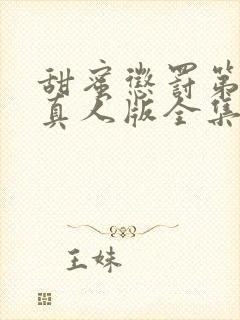 甜蜜惩罚第
真人版全集
王妹